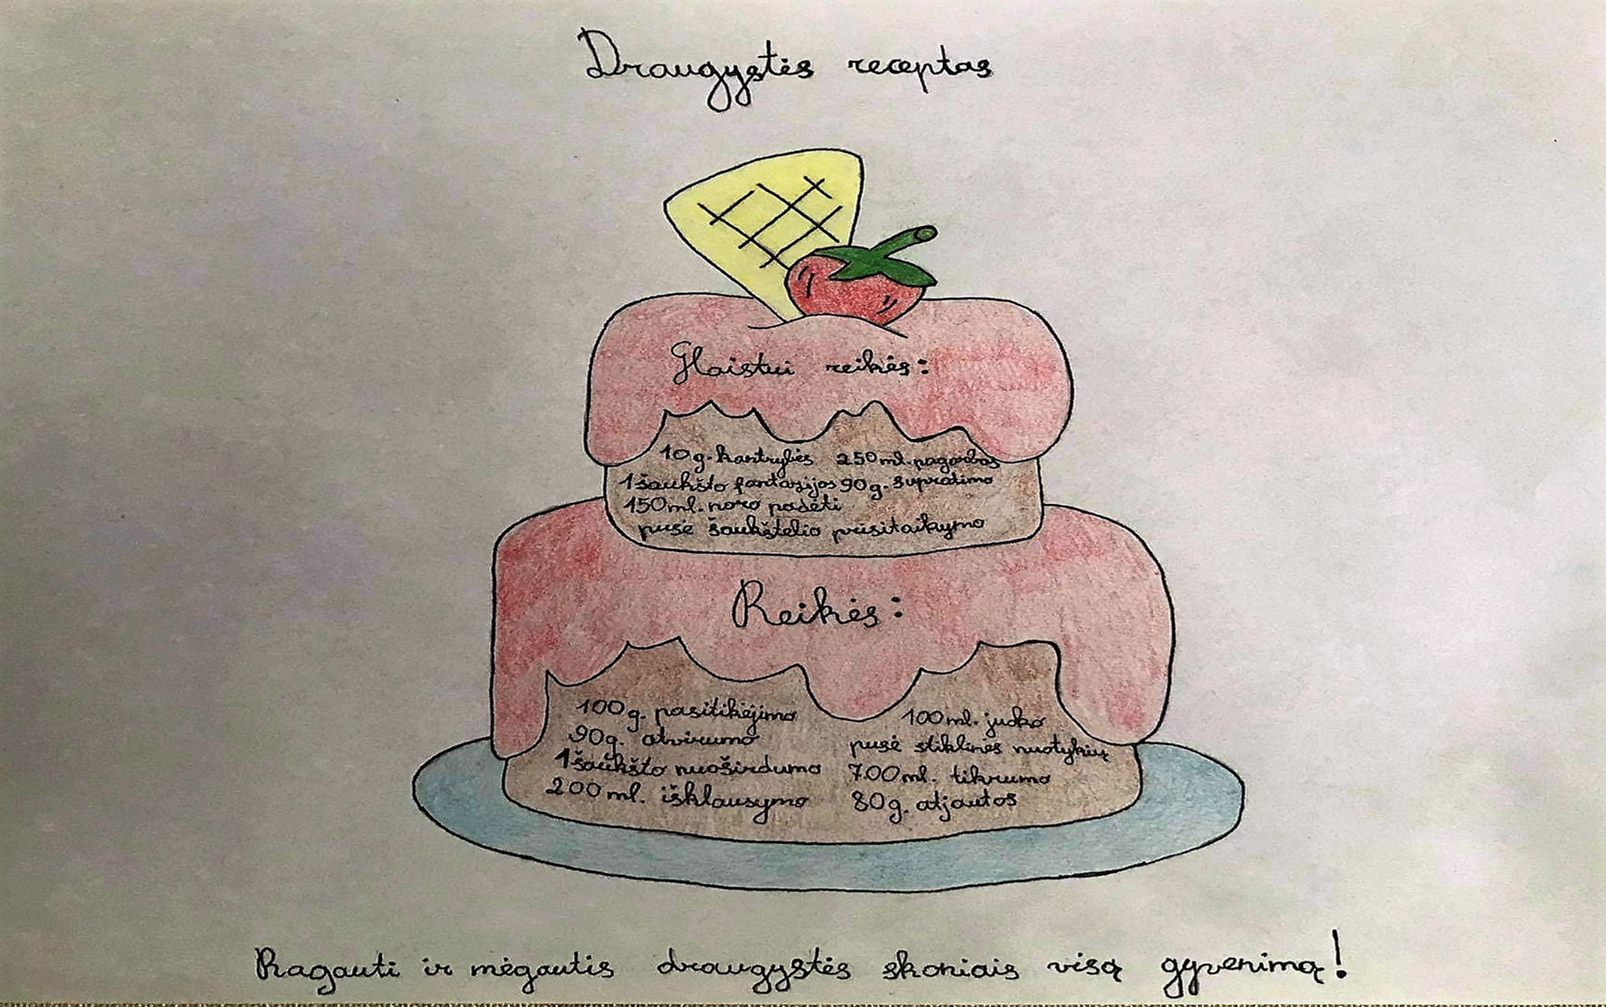 Draugystės receptas
Glaistui reikės:
10g. kantrybės 250ml. pagarbos
1 šaukšto fantazijos 90g. supratimo
150ml. noro padėti
pusė šaukštelio prisitaikymo
Reikės:
100g. pasitikėjimo
90g. atvirumo
1 šaukšto nuoširdumo
200ml. išklausymo
100ml. juoko
pusė stiklinės nuotykių
700ml. tikrumo
80g. atjautos
Ragauti ir mėgautis draugystės skoniais visą gyvenimą!